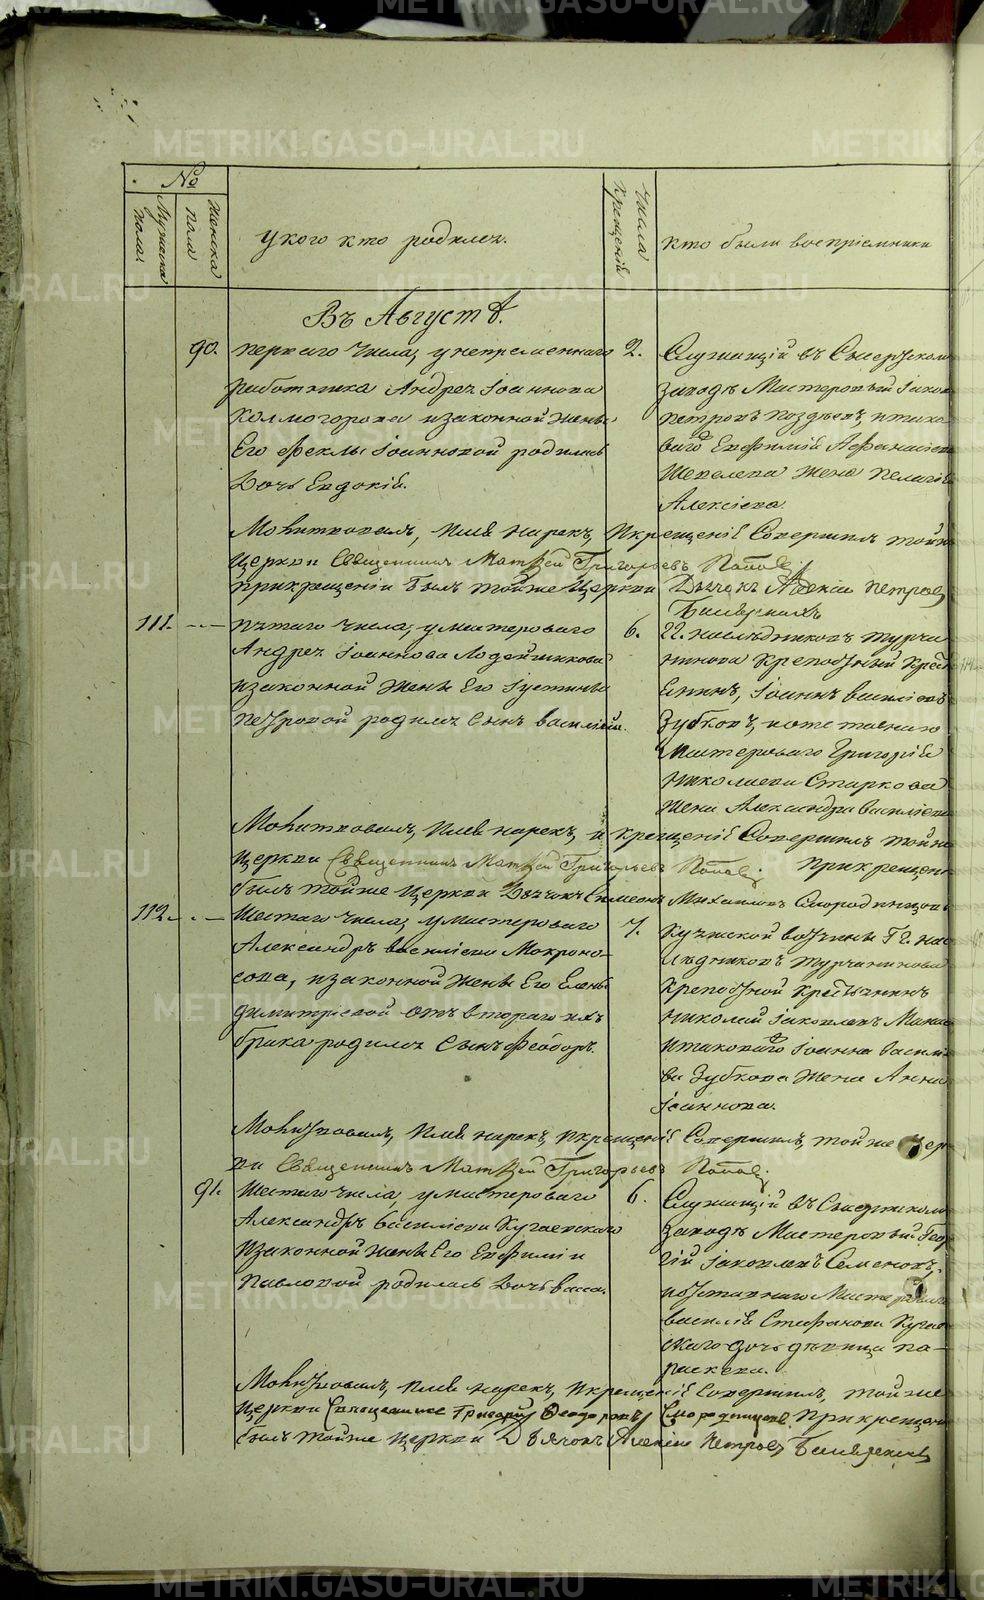 METRIKI.GASO-URAL.RU
№
Мужеска пола.
Женска пола
У кого кто родился.
Числа крещенія
Кто были воспріемники
Въ Августѣ.
90. перваго числа, у непременнаго 2.
работника Андрея Іоаннова
Колмогорова и законной жены
Его Феклы Іоанновой родилась
Дочь Евдокія.
Служащій въ Сысертском
заводѣ Мастеровый Іаков
Петровъ Поздѣевъ, и тако
ваго Евфимій Афанасіева
Шепелева жена Пелагія
Алексіева.
Молитвовалъ, Имя нарекъ, И крещеніе Совершилъ той же
Церкви Священникъ Матѳей Григорьевъ Поповъ
при крещеніи былъ той же Церкви Дьячекъ Алексій Петровъ
111. пятаго числа, у мастероваго 6.
Андрея Іоаннова Лодейщикова
и законной жены Его Іустины
Петровой родился Сынъ Василій.
ГГ. наслѣдниковъ Турча
нинова Крепостный Крест
янинъ, Іоаннъ Василіевъ
Зубковъ, и отставнаго
Мастероваго Григорія
Николаева Старкова
жена Александра Василіева
Молитвовалъ, Имя нарекъ, и крещеніе Совершилъ той же
Церкви Священникъ Матѳей Григорьевъ Поповъ. При крещеніи
былъ той же Церкви Дьячокъ Симеонъ Михайловъ Смородинцовъ
112. Шестаго числа, у Мастероваго 7.
Александра Василіева Мокроно-
сова, и законной жены Его Елены
Димитріевой отъ втораго их
брака родился Сынъ Феодоръ.
ГГ. нас
лѣдниковъ Турчанинова
крепостной крестьянинъ
Николай Іаковлевъ
и таковаго Іоанна Василіе
ва Зубкова жена Анна
Іоаннова.
Молитвовалъ, Имя нарекъ, и крещеніе Совершилъ, той же Цер
кви Священникъ Матѳей Григорьевъ Поповъ.
91. Шестаго числа, у мастероваго 6.
Александра Василіева Кугаевскаго
и законной жены Его Евфиміи
Павловой родилась Дочь Васса.
Служащій въ Сысертском
Заводѣ Мастеровый Геор
гій Іаковлевъ Семеновъ,
и отставнаго Мастероваго
Василія Стефанова Кугаев
скаго дочь дѣвица Па-
раскева.
Молитвовалъ, Имя нарекъ, И крещеніе Совершилъ, той же
Церкви Священникъ Григорій Феодоровъ Смородинцовъ. При крещеніи
былъ той же Церкви Дьячокъ Алексій Петровъ